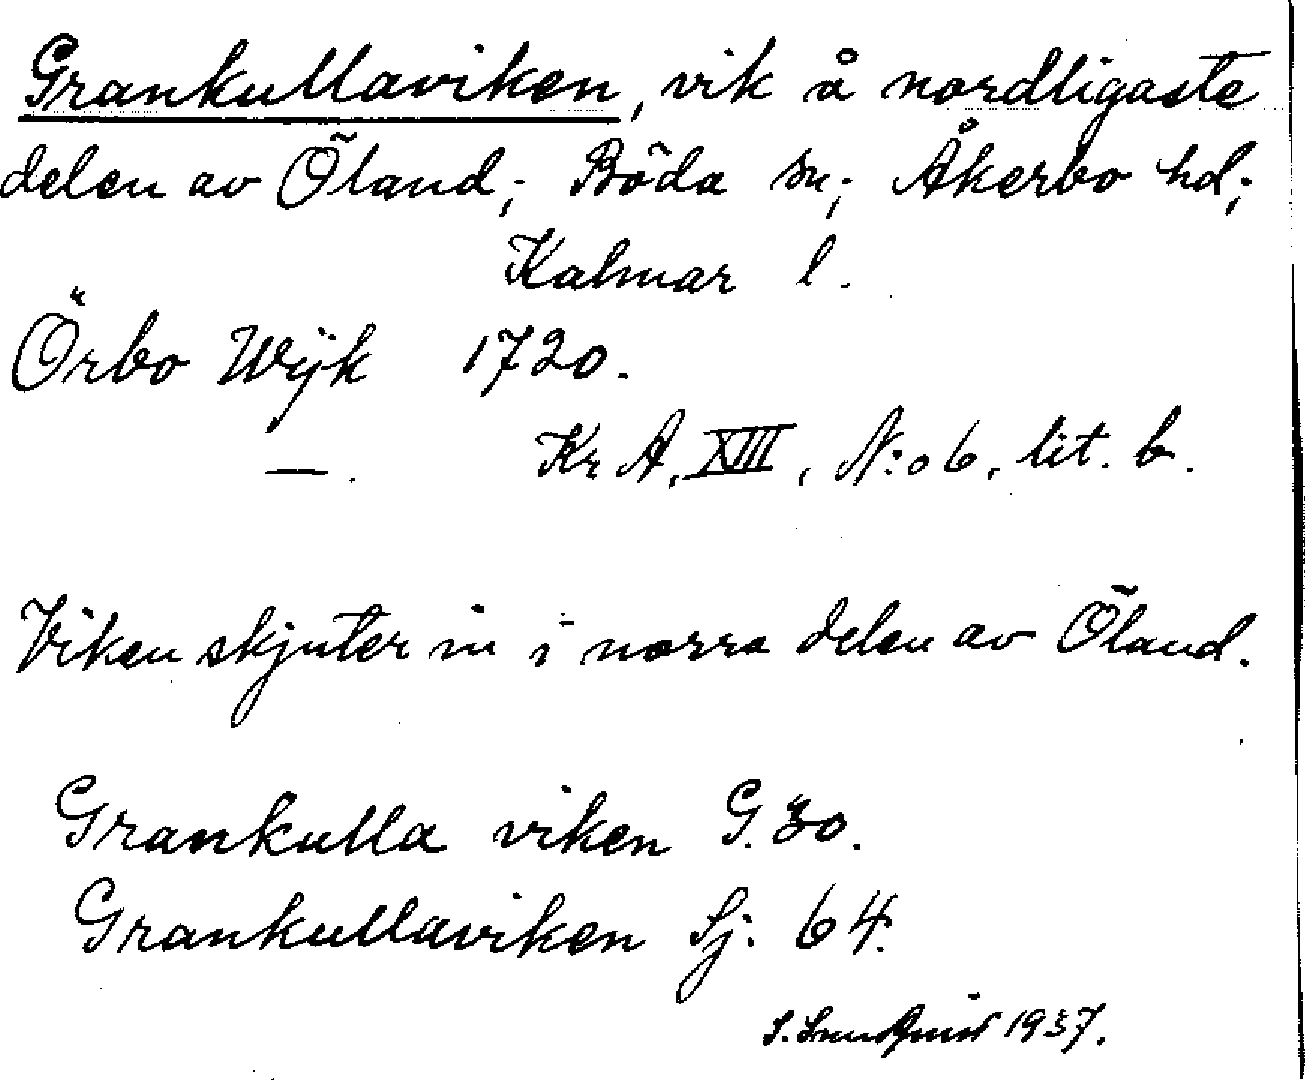 Grankullaviken, vik å nordligaste
delen av Öland; Böda sn; Åkerbo hd;
Kalmar l.
Örbo Wijk 1720.
—. Kr A, XIII, N:o 6, lit. b.
Viken skjuter in i norra delen av Öland.
Grankulla viken G. 30.
Grankullaviken Sj. 64.
1937.